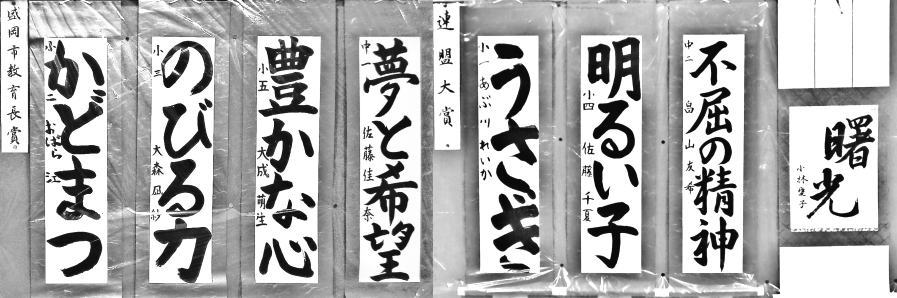 曙光
不屈の精神
中二 畠山友希
明るい子
小四 佐藤千夏
うさぎ
小一 あぶ川れいか
連盟大賞
夢と希望
中一 佐藤佳奈
豊かな心
小五 大成萌生
のびる力
小三 大森
かどまつ
小二 おばら
盛岡市教育長賞